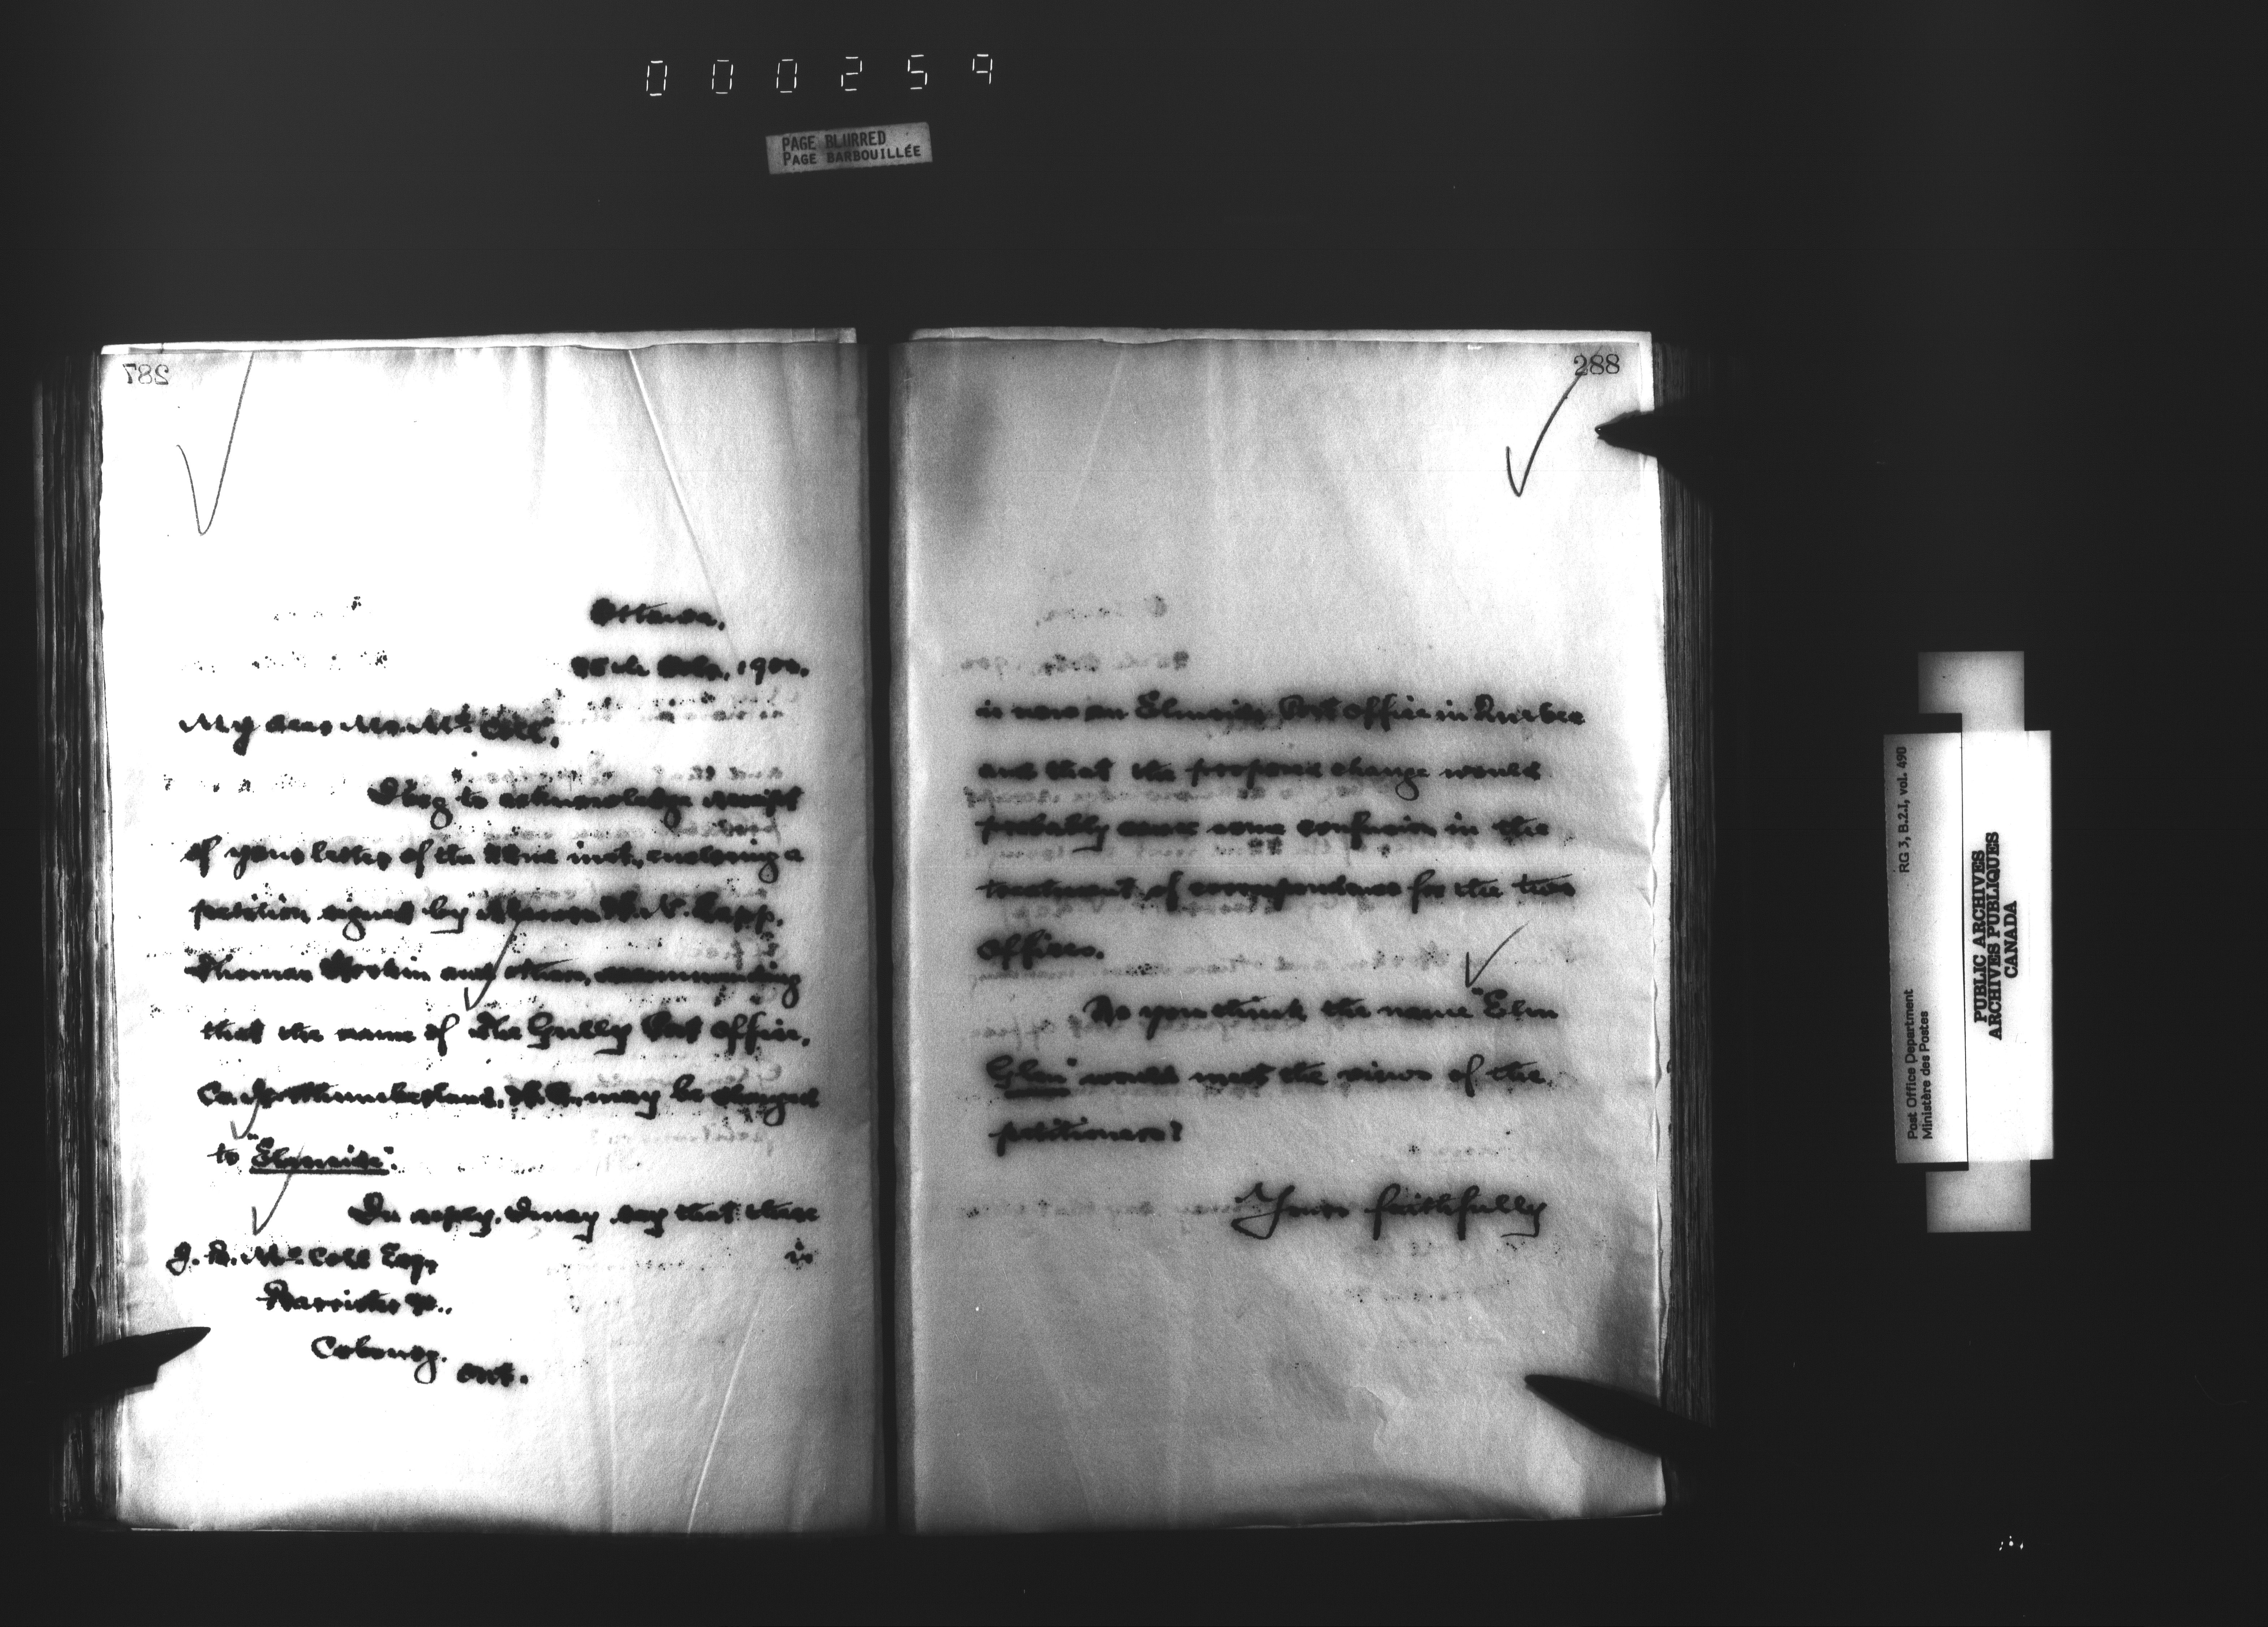 000259
PAGE BLURRED
PAGE BARBOUILLÉE
287
Ottawa,
1900.
My dear Mr. McColl,
I beg to acknowledge receipt
of your letter of the inst., enclosing a
petition signed by Messrs.
Thomas Hoskin and others, recommending
that the name of The Gully Post Office,
Co. Northumberland, may be changed
to "Elmside".
In reply, I may say that there
is
J. B. McColl Esq,
Barrister &c.,
Cobourg. Ont.
288
is now an Elmside Post Office in Quebec
and that the proposed change would
probably cause some confusion in the
treatment of correspondence for the two
offices.
Do you think the name "Elm
Glen" would meet the views of the
petitioners?
Yours faithfully
RG 3, B.2.1, vol. 490
Post Office Department
Ministère des Postes
PUBLIC ARCHIVES
ARCHIVES PUBLIQUES
CANADA